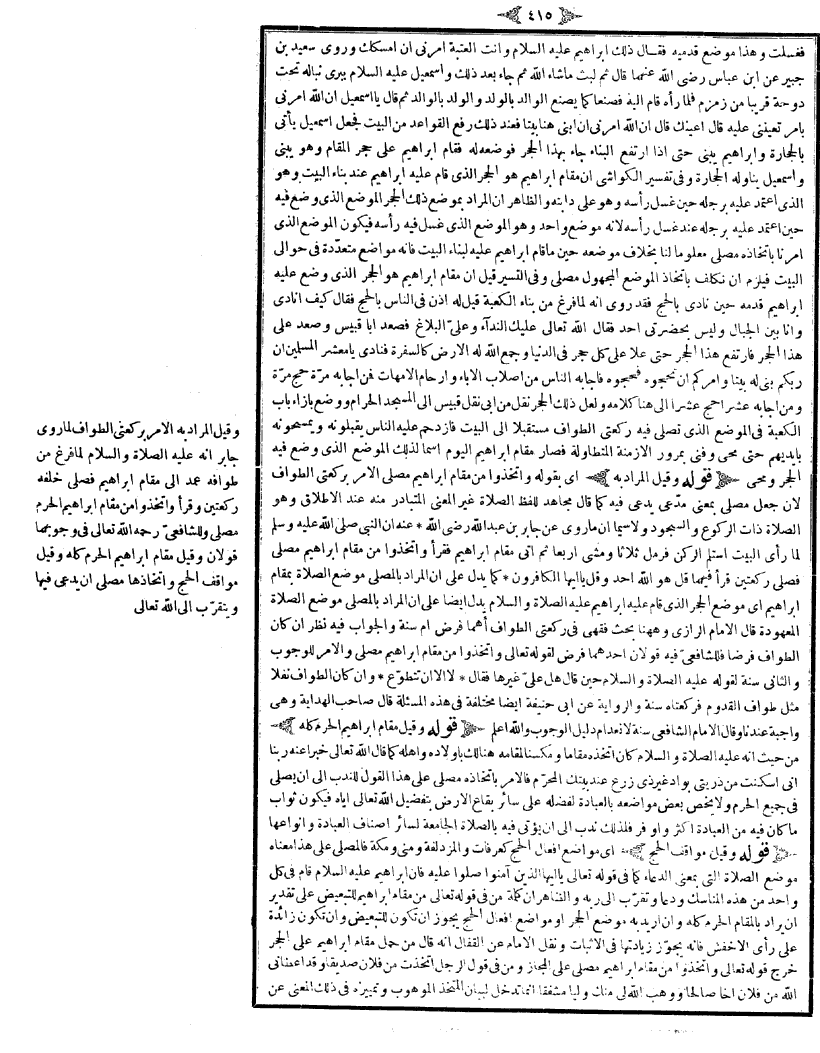 ٤١٥
فغسلت وهذا موضع قدميه فقال ذلك ابراهيم عليه السلام وانت العتبة امرنى ان امسكك وروى سعيد بن
جبير عن ابن عباس رضى الله عنهما قال ثم لبث ماشاء الله ثم جاء بعد ذلك واسمعيل عليه السلام يبرى نباله تحت
دوحة قريبا من زمزم فلما رأه قام اليه فصنعا كما يصنع الوالد بالولد والولد بالوالد ثم قال يا اسمعيل ان الله امرنى
بامر تعيننى عليه قال اعينك قال ان الله امرنى ان ابنى هنا بيتا فعند ذلك رفع القواعد من البيت فجعل اسمعيل يأتى
بالحجارة وابراهيم يبنى حتى اذا ارتفع البناء جاء بهذا الحجر فوضعه له فقام ابراهيم على حجر المقام وهو يبنى
واسمعيل يناوله الحجارة وفى تفسير الكواشى ان مقام ابراهيم هو الحجر الذى قام عليه ابراهيم عند بناء البيت وهو
الذى اعتمد عليه برجله حين غسل رأسه وهو على دابته والظاهر ان المراد بموضع ذلك الحجر الموضع الذى وضع فيه
حين اعتمد عليه برجله عند غسل رأسه لانه موضع واحد وهو الموضع الذى غسل فيه رأسه فيكون الموضع الذى
امرنا باتخاذه مصلى معلوما لنا بخلاف موضعه حين ماقام ابراهيم عليه لبناء البيت فانه مواضع متعدّدة فى حوالى
البيت فيلزم ان نكلف باتخاذ الموضع المجهول مصلى وفى التسير قيل ان مقام ابراهيم هو الحجر الذى وضع عليه
ابراهيم قدمه حين نادى بالحج فقد روى انه لما فرغ من بناء الكعبة قيل له اذن فى الناس بالحج فقال كيف انادى
وانا بين الجبال وليس بحضرتى احد فقال الله تعالى عليك الندآء وعلىّ البلاغ فصعد ابا قبيس وصعد على
هذا الحجر فارتفع هذا الحجر حتى علا على كل حجر فى الدنيا وجمع الله له الارض كالسفرة فنادى يا معشر المسلين ان
ربكم بنى له بيتا وامركم ان تحجوه فحجوه فاجابه الناس من اصلاب الاباء وارحام الامهات فمن اجابه مرّة حج مرّة
ومن اجابه عشرا حج عشرا الى هنا كلامه ولعل ذلك الحجر نقل من ابى قبيس الى المسجد الحرام ووضع بازاء باب
الكعبة فى الموضع الذى تصلى فيه ركعتى الطواف مستقبلا الى البيت فازدحم عليه الناس يقبلونه ويمسحونه
بايديهم حتى محى وفنى بمرور الازمنة المتطاولة فصار مقام ابراهيم اليوم اسما لذلك الموضع الذى وضع فيه
الحجر ومحى قوله وقيل المراد به اى بقوله واتخذوا من مقام ابراهيم مصلى الامر بركعتى الطواف
لان جعل مصلى بمعنى مدّعى يدعى فيه كما قال مجاهد للفظ الصلاة غير المعنى المتبادر منه عند الاطلاق وهو
الصلاة ذات الركوع والسجود ولاسيما ان ماروى عن جابر بن عبد الله رضى الله * عنه ان النبى صلى الله عليه وسلم
لما رأى البيت استلم الركن فرمل ثلاثا ومشى اربعا ثم اتى مقام ابراهيم فقرأ واتخذوا من مقام ابراهيم مصلى
فصلى ركعتين قرأ فيهما قل هو الله احد وقل ياايها الكافرون * كما يدل على ان المراد بالمصلى موضع الصلاة بمقام
ابراهيم اى موضع الحجر الذى قام عليه ابراهيم عليه الصلاة و السلام يدل ايضا على ان المراد بالمصلى موضع الصلاة
المعهودة قال الامام الرازى وههنا بحث فقهى فى ركعتى الطواف أهما فرض ام سنة والجواب فيه نظر ان كان
الطواف فرضا فللشافعىّ فيه قولان احدهما فرض لقوله تعالى واتخذوا من مقام ابراهيم مصلى والامر للوجوب
والثانى سنة لقوله عليه الصلاة والسلام حين قال هل علىّ غيرها فقال * لا الا ان تتطوّع * وان كان الطواف نفلا
مثل طواف القدوم فركعتاه سنة والرواية عن ابى حنيفة ايضا مختلفة فى هذه المسئلة قال صاحب الهداية وهى
واجبة عندنا وقال الامام الشافعى سنة لانعدام دليل الوجوب والله اعلم قوله وقيل مقام ابراهيم الحرم كله
من حيث انه عليه الصلاة و السلام كان اتخذه مقاما و مسكنا لمقامه هنالك باولاده واهله كما قال الله تعالى خبرا عنه ربنا
انى اسكنت من ذريتى بواد غير ذى زرع عند بيتك المحرّم فالامر باتخاذه مصلى على هذا القول للندب الى ان يصلى
فى جميع الحرم ولا يخص بعض مواضعه بالعبادة لفضله على سائر بقاع الارض بتفضيل الله تعالى اياه فيكون ثواب
ما كان فيه من العبادة اكثر واوفر فلذلك ندب الى ان يؤتى فيه بالصلاة الجامعة لسائر اصناف العبادة وانواعها
قوله وقيل مواقف الحج اى مواضع افعال الحج كعرفات والمزدلفة ومنى ومكة فالمصلى على هذا معناه
موضع الصلاة التى بمعنى الدعاء كما فى قوله تعالى ياايها الذين آمنوا صلوا عليه فان ابراهيم عليه السلام قام فى كل
واحد من هذه المناسك ودعا وتقرّب الى ربه والظاهر ان كلمة من فى قوله تعالى من مقام ابراهيم للتبعيض على تقدير
ان يراد بالمقام الحرم كله وان اريد به موضع الحجر او مواضع افعال الحج يجوز ان تكون للتبعيض وان تكون زائدة
على رأى الاخفش فانه يجوّز زيادتها فى الاثبات ونقل الامام عن القفال انه قال من حمل مقام ابراهيم على الحجر
خرج قوله تعالى واتخذوا من مقام ابراهيم مصلى على المجاز ومن فى قول الرجل اتخذت من فلان صديقا وقد اعطانى
الله من فلان اخا صالحا ووهب الله لى منك وليا مشفقا انما تدخل لبيان المتخذ الموهوب وتمييزه فى ذلك المعنى عن
وقيل المراد به الامر بركعتى الطواف لما روى
جابر انه عليه الصلاة والسلام لما فرغ من
طوافه عمد الى مقام ابراهيم فصلى خلفه
ركعتين وقرأ واتخذوا من مقام ابراهيم الحرم
مصلى وللشافعىّ رحمه الله تعالى فى وجوبهما
قولان وقيل مقام ابراهيم الحرم كله وقيل
مواقف الحج واتخاذها مصلى ان يدعى فيها
ويتقرّب الى الله تعالى